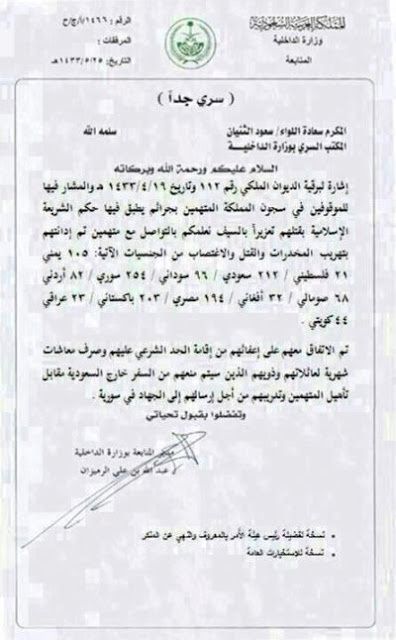 المملكة العربية السعودية
وزارة الداخلية
المتابعة
الرقم : ١٤٦٦/أ/ج/ح
المرفقات :
التاريخ : ١٤٣٣/٥/٢٥هـ
( سري جداً )
المكرم سعادة اللواء/ سعود الثنيان سلمه الله
المكتب السري بوزارة الداخلية
السلام عليكم ورحمة الله وبركاته
إشارة لبرقية الديوان الملكي رقم ١١٢ وتاريخ ١٤٣٣/٤/١٩ هـ والمشار فيها
للموقوفين في سجون المملكة المتهمين بجرائم يطبق فيها حكم الشريعة
الإسلامية بقتلهم تعزيراً بالسيف نعلمكم بالتواصل مع متهمين تم إدانتهم
بتهريب المخدرات والقتل والاغتصاب من الجنسيات الآتية: ١٠٥ يمني
٢١ فلسطيني / ٢١٢ سعودي / ٩٦ سوداني / ٢٥٤ سوري / ٨٢ أردني
٦٨ صومالي / ٣٢ أفغاني / ١٩٤ مصري / ٢٠٣ باكستاني / ٢٣ عراقي
٤٤ كويتي .
تم الاتفاق معهم على إعفائهم من إقامة الحد الشرعي عليهم وصرف معاشات
شهرية لعائلاتهم وذويهم الذين سيتم منعهم من السفر خارج السعودية مقابل
تأهيل المتهمين وتدريبهم من أجل إرسالهم إلى الجهاد في سورية .
وتفضلوا بقبول تحياتي
مدير المتابعة بوزارة الداخلية
عبدالله بن علي الرميزان
• نسخة لفضيلة رئيس هيئة الأمر بالمعروف والنهي عن المنكر
• نسخة للاستخبارات العامة